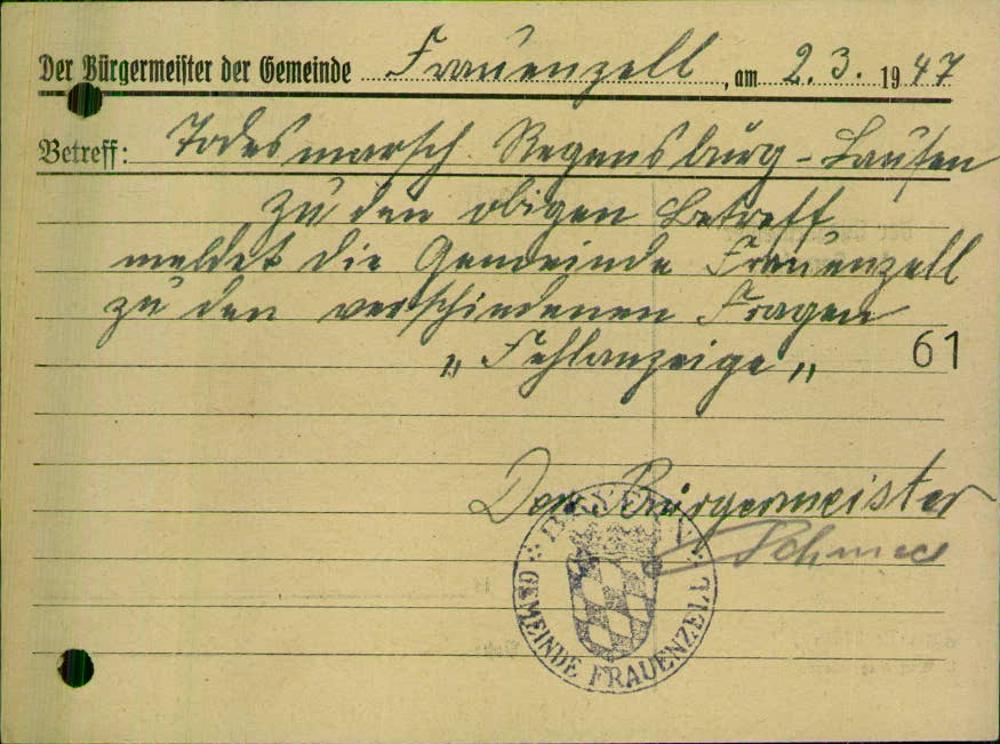 Der Bürgermeister der Gemeinde Frauenzell, am 2.3. 1947
Betreff: Todesmarsch Regensburg - Laufen
Zu den obigen Betreff
meldet die Gemeinde Frauenzell
zu den verschiedenen Fragen
"Fehlanzeige"
61
Der Bürgermeister
BAYERN
GEMEINDE FRAUENZELL